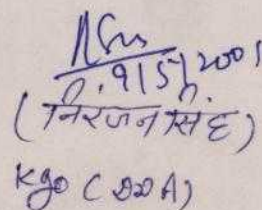 9/5/2001
(निरंजन सिंह)
Kgo (DDA)